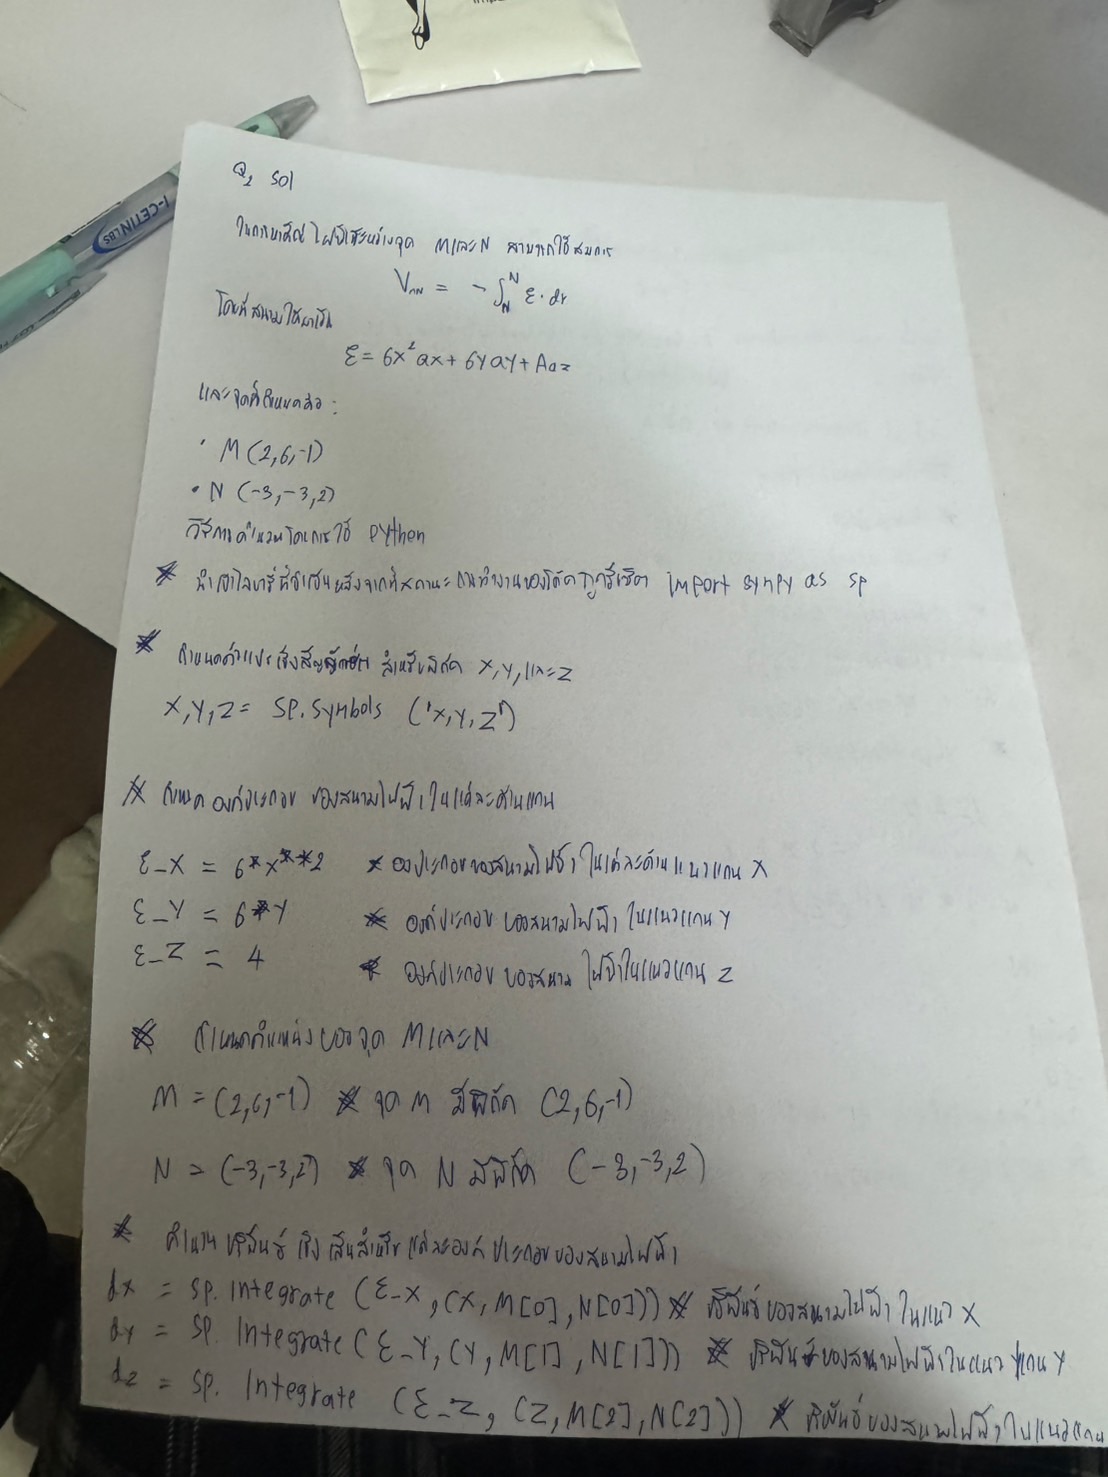 I-CETIN LBS
Q2 sol
ไฟฟ้าระหว่างจุด M และ N สามารถใช้สมการ
V = - ∫ ε · dr
โดยที่สนามไฟฟ้าเป็น
ε = 6x² ax + 6y ay + A az
และจุดที่กำหนดคือ :
• M (2,6,-1)
• N (-3,-3,2)
วิธีการคำนวณโดยการใช้ python
* import sympy as sp
* กำหนดตัวแปรเชิงสัญลักษณ์ สำหรับพิกัด x,y, และ z
x,y,z = sp.symbols ('x,y,z')
* กำหนด องค์ประกอบ ของสนามไฟฟ้าในแต่ละด้านแกน
ε_x = 6*x**2 * องประกอบของสนามไฟฟ้า ในแต่ละด้านแนวแกน x
ε_y = 6*y * องค์ประกอบ ของสนามไฟฟ้า ในแนวแกน y
ε_z = 4 * องค์ประกอบ ของสนาม ไฟฟ้าในแนวแกน z
* กำหนดตำแหน่งของจุด M และ N
M = (2,6,-1) * จุด M มีพิกัด (2,6,-1)
N = (-3,-3,2) * จุด N มีพิกัด (-3,-3,2)
* คำนวน ปริพันธ์ เชิงเส้นสำหรับ แต่ละองค์ ประกอบของสนามไฟฟ้า
dx = sp. integrate (ε_x, (x, M[0], N[0])) * ปริพันธ์ของสนามไฟฟ้า ในแนว x
dy = sp. integrate (ε_y, (y, M[1], N[1])) * ปริพันธ์ของสนามไฟฟ้าในแนว แกน y
dz = sp. integrate (ε_z, (z, M[2], N[2])) * ปริพันธ์ของสนามไฟฟ้าในแนวแกน